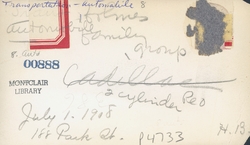 Transportation - Automobile 8
Holmes
Automobile
Family
Group
8. Auto
00888
MONTCLAIR
LIBRARY
Cadillac
2 cylinder Reo
July 1. 1908
168 Park St. P4733 H.B.